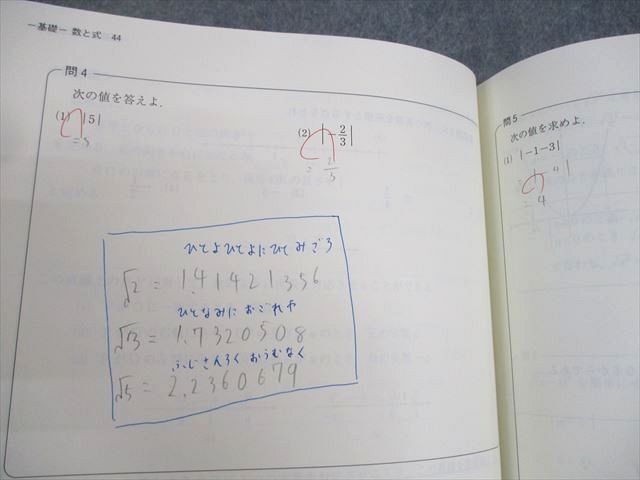 －基礎－ 数と式 44
問4
次の値を答えよ.
(1) |5|
=5
(2) |-2/3|
= 2/3
ひとよひとよにひとみごろ
√2 = 1.41421356
ひとなみに おごれや
√3 = 1.7320508
ふじさんろく おうむなく
√5 = 2.2360679
問5
次の値を求めよ.
(1) |-1-3|
= |-4|
= 4